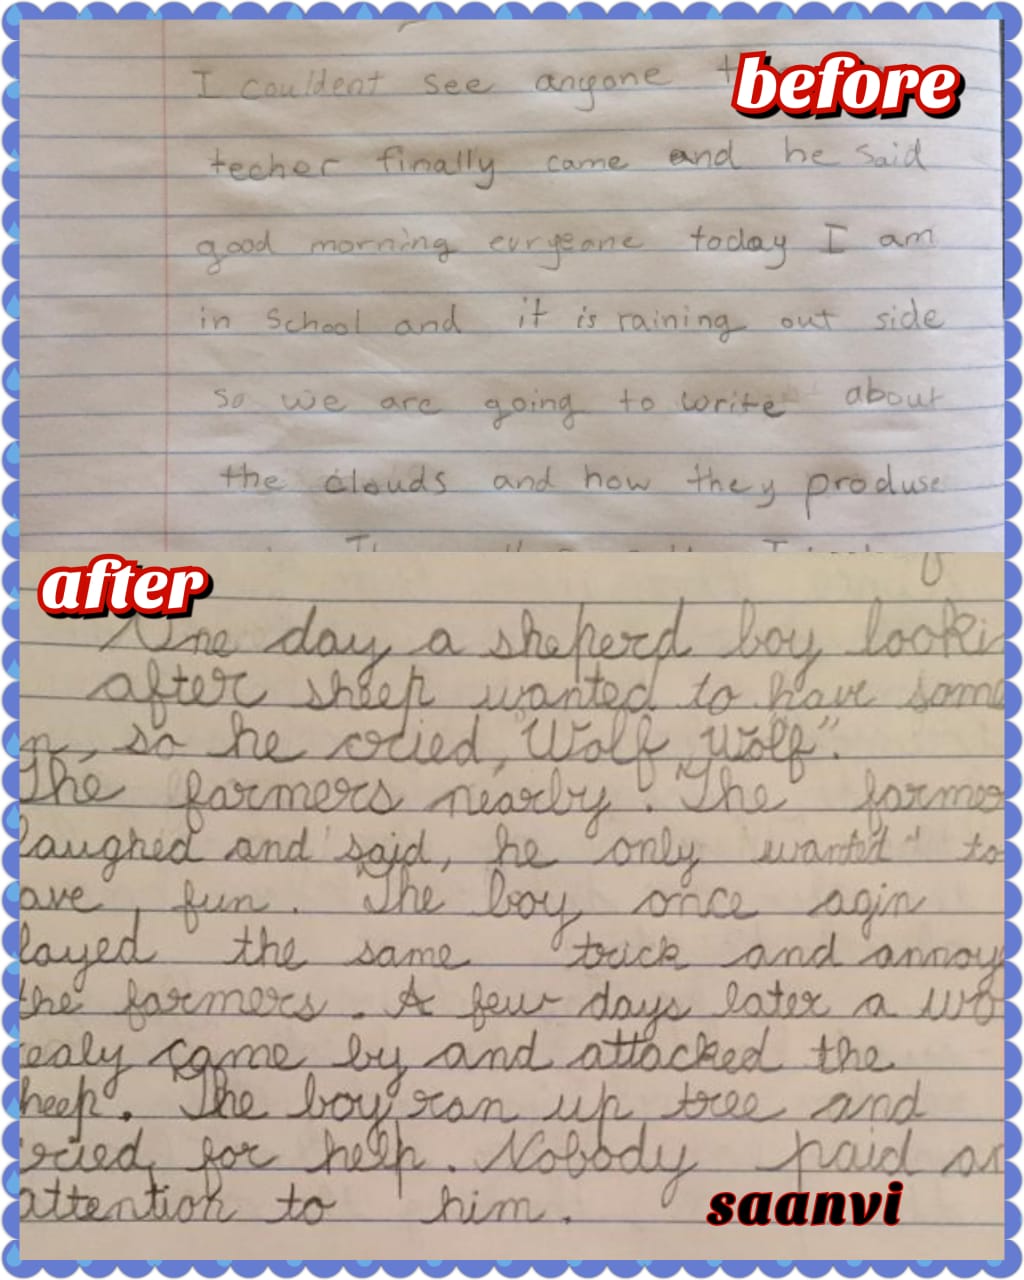 before
I couldent see anyone
techer finally came and he said
good morning evryeone today I am
in School and it is raining out side
so we are going to write about
the clouds and how they produse
after
One day a sheperd boy looki
after sheep wanted to have some
n, so he cried, "Wolf, Wolf".
The farmers nearby. The farmer
laughed and said, he only wanted to
ave fun. The boy once agin
layed the same trick and annoy
the farmers. A few days later a wo
ealy came by and attacked the
heep. The boy ran up tree and
ried for help. Nobody paid an
attention to him.
saanvi